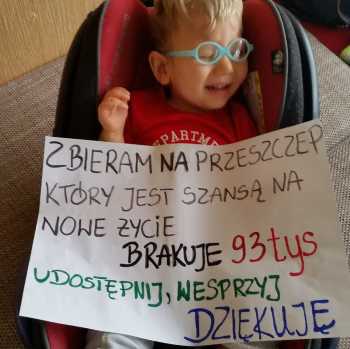 EPARTME
ZBIERAM NA PRZESZCZEP
KTÓRY JEST SZANSĄ NA
NOWE ŻYCIE
BRAKUJE 93 tys
UDOSTĘPNIJ, WESPRZYJ
DZIĘKUJĘ